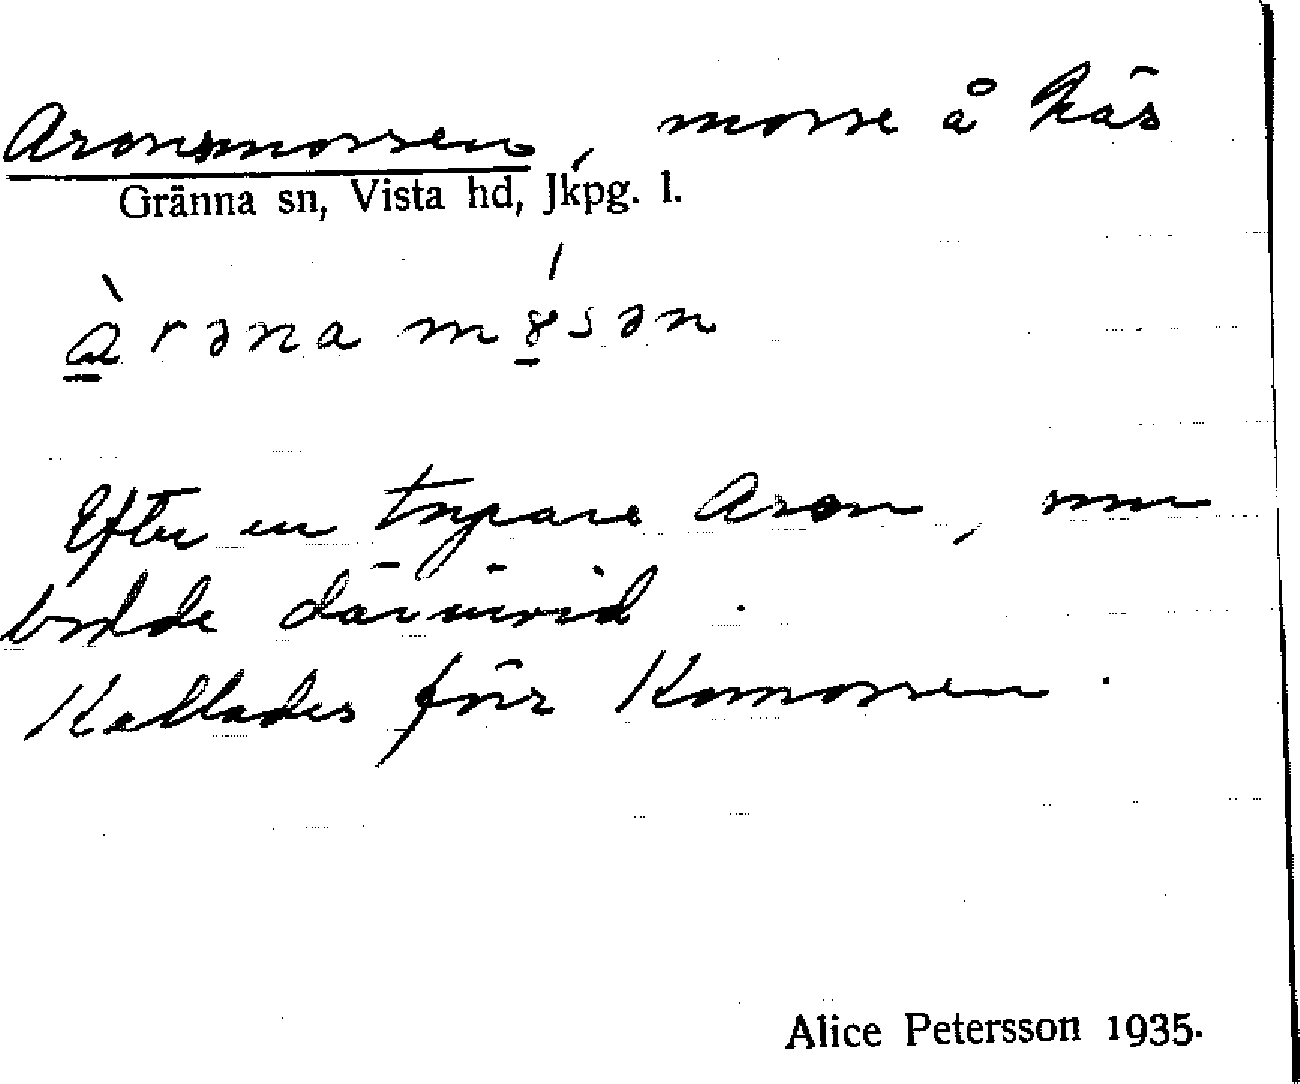 Aronsmossen, mosse å Näs
Gränna sn, Vista hd, Jkpg. l.
àrəna mɤ́sən
Efter en torpare Aron, som
bodde därinvid.
Kallades förr Komossen.
Alice Petersson 1935.